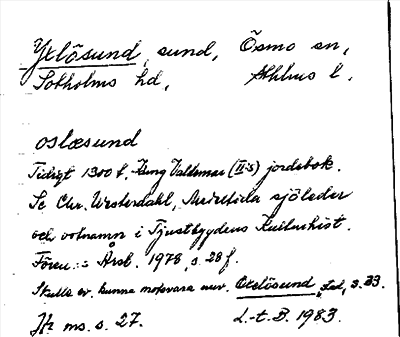 Yxlösund, sund, Ösmo sn,
Sotholms hd, Sthlms l.
oslæsund
Tidigt 1300 t. Kung Valdemar (II:s) jordebok.
Se Chr. Westerdahl, Medeltida sjöleder
och ortnamn i Tjustbygdens Kulturhist.
Fören:s Årsb. 1978, s. 28 f.
Skulle ev. kunna motsvara nuv. Oxelösund, Led, s. 33.
Jfr ms. s. 27. L.-t. B. 1983.